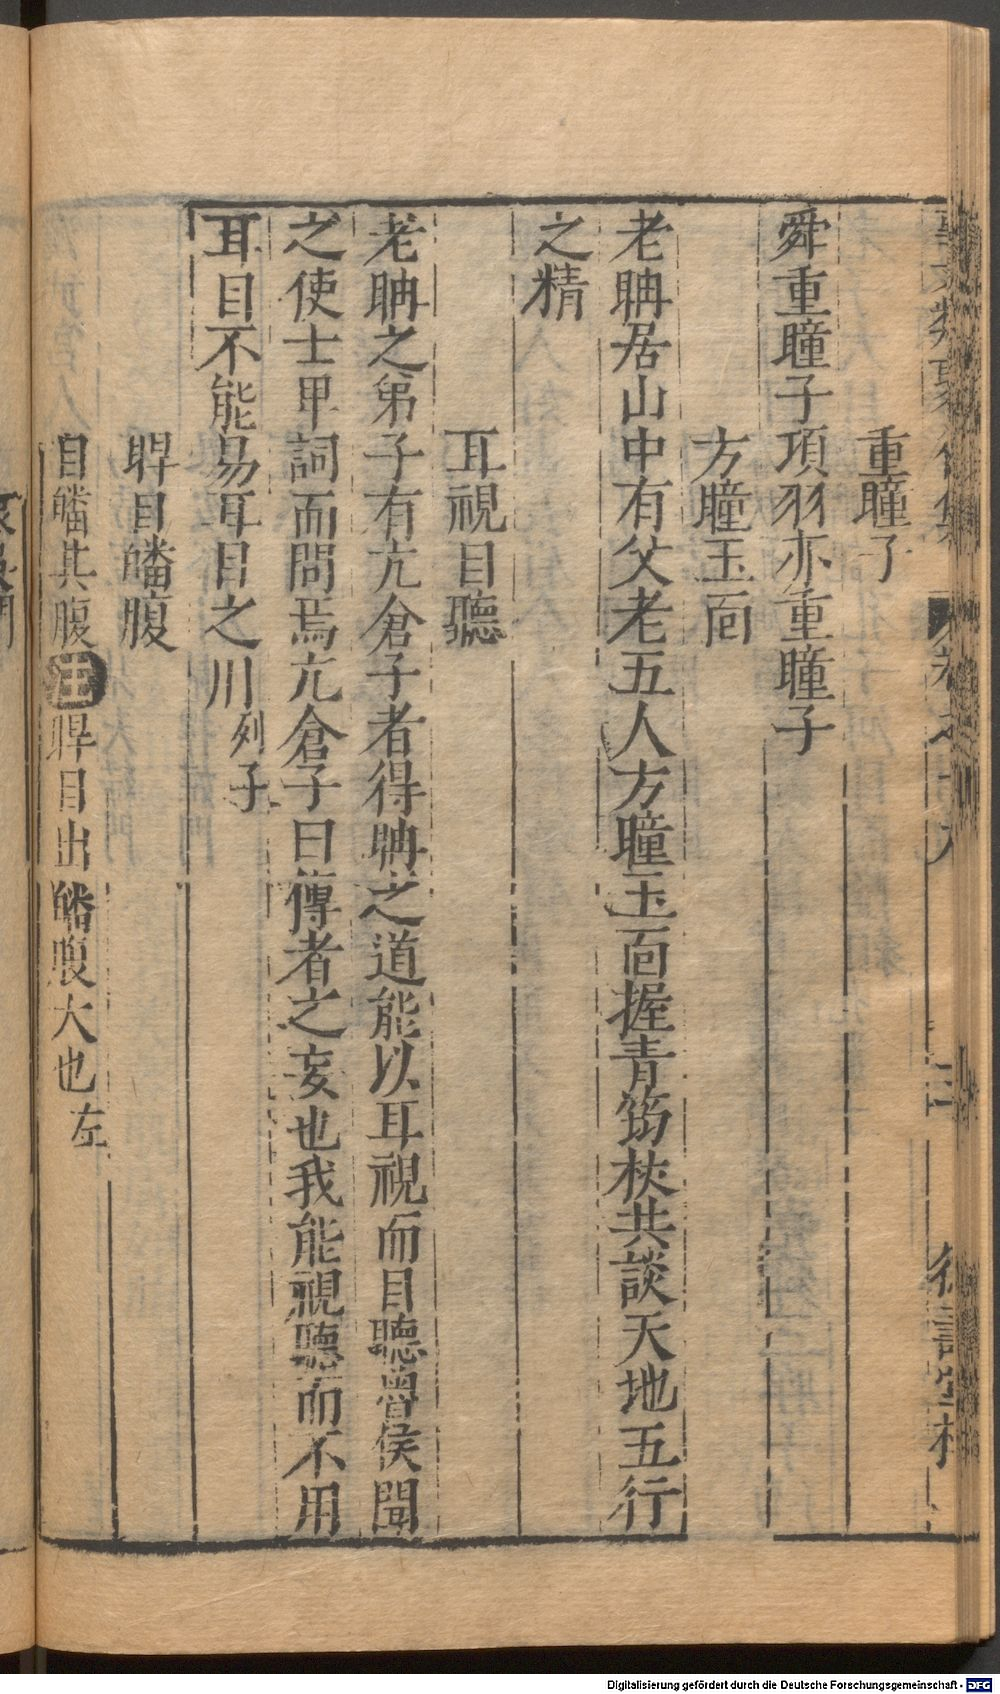 重瞳子
舜重瞳子項羽亦重瞳子
方瞳玉面
老聃居山中有父老五人方瞳玉面握青筠杖共談天地五行
之精
耳視目聽
老聃之弟子有亢倉子者得聃之道能以耳視而目聽魯侯聞
之使士甲詞而問焉亢倉子曰傳者之妄也我能視聽而不用
耳目不能易耳目之用列子
睅目皤腹
目皤其腹
註
睅目出皤腹大也左
Digitalisierung gefördert durch die Deutsche Forschungsgemeinschaft - DFG